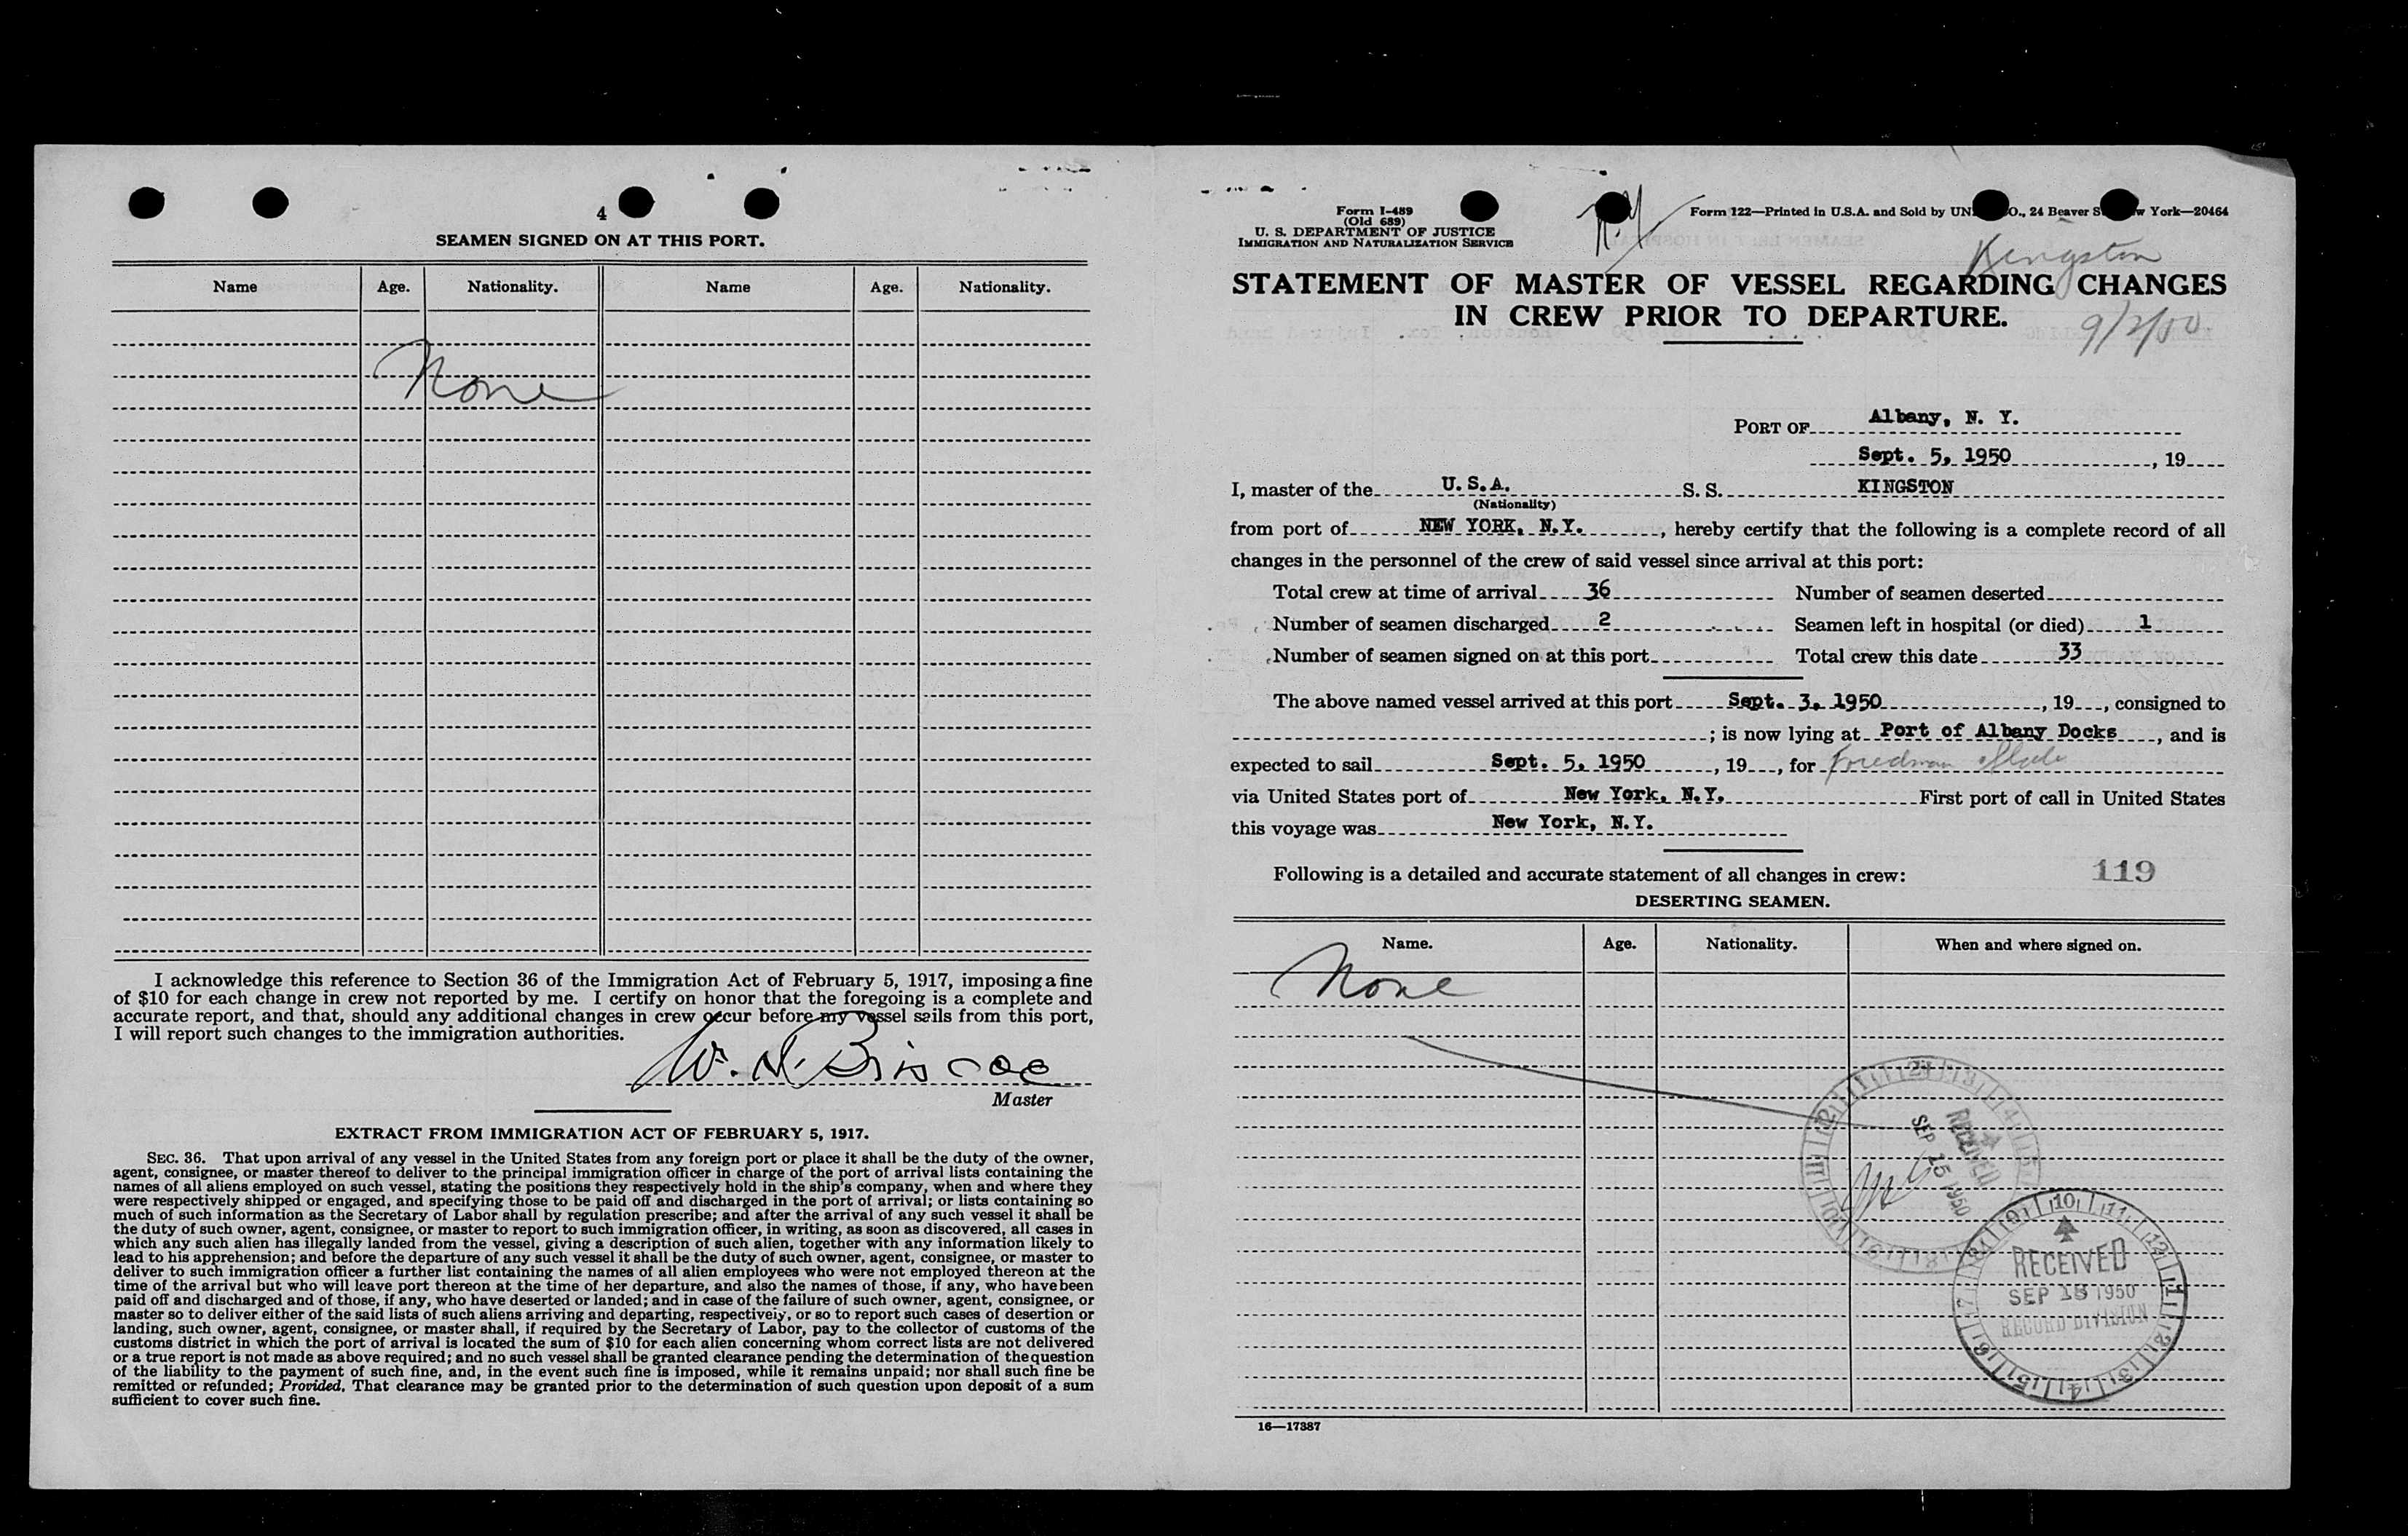 4
SEAMEN SIGNED ON AT THIS PORT.
Name Age. Nationality. Name Age. Nationality.
None
I acknowledge this reference to Section 36 of the Immigration Act of February 5, 1917, imposing a fine
of $10 for each change in crew not reported by me. I certify on honor that the foregoing is a complete and
accurate report, and that, should any additional changes in crew occur before my vessel sails from this port,
I will report such changes to the immigration authorities.
Briscoe
Master
EXTRACT FROM IMMIGRATION ACT OF FEBRUARY 5, 1917.
SEC. 36. That upon arrival of any vessel in the United States from any foreign port or place it shall be the duty of the owner,
agent, consignee, or master thereof to deliver to the principal immigration officer in charge of the port of arrival lists containing the
names of all aliens employed on such vessel, stating the positions they respectively hold in the ship's company, when and where they
were respectively shipped or engaged, and specifying those to be paid off and discharged in the port of arrival; or lists containing so
much of such information as the Secretary of Labor shall by regulation prescribe; and after the arrival of any such vessel it shall be
the duty of such owner, agent, consignee, or master to report to such immigration officer, in writing, as soon as discovered, all cases in
which any such alien has illegally landed from the vessel, giving a description of such alien, together with any information likely to
lead to his apprehension; and before the departure of any such vessel it shall be the duty of such owner, agent, consignee, or master to
deliver to such immigration officer a further list containing the names of all alien employees who were not employed thereon at the
time of the arrival but who will leave port thereon at the time of her departure, and also the names of those, if any, who have been
paid off and discharged and of those, if any, who have deserted or landed; and in case of the failure of such owner, agent, consignee, or
master so to deliver either of the said lists of such aliens arriving and departing, respectively, or so to report such cases of desertion or
landing, such owner, agent, consignee, or master shall, if required by the Secretary of Labor, pay to the collector of customs of the
customs district in which the port of arrival is located the sum of $10 for each alien concerning whom correct lists are not delivered
or a true report is not made as above required; and no such vessel shall be granted clearance pending the determination of the question
of the liability to the payment of such fine, and, in the event such fine is imposed, while it remains unpaid; nor shall such fine be
remitted or refunded; Provided, That clearance may be granted prior to the determination of such question upon deposit of a sum
sufficient to cover such fine.
Form I-489
(Old 689)
U. S. DEPARTMENT OF JUSTICE
IMMIGRATION AND NATURALIZATION SERVICE
N.Y
Form 122—Printed in U.S.A. and Sold by 24 Beaver York—20464
Kingston
STATEMENT OF MASTER OF VESSEL REGARDING CHANGES
IN CREW PRIOR TO DEPARTURE.
9/2/50
PORT OF Albany, N. Y.
Sept. 5, 1950, 19
I, master of the U.S.A. S. S. KINGSTON
(Nationality)
from port of NEW YORK, N.Y., hereby certify that the following is a complete record of all
changes in the personnel of the crew of said vessel since arrival at this port:
Total crew at time of arrival 36 Number of seamen deserted
Number of seamen discharged 2 Seamen left in hospital (or died) 1
Number of seamen signed on at this port Total crew this date 33
The above named vessel arrived at this port Sept. 3, 1950, 19, consigned to
; is now lying at Port of Albany Docks, and is
expected to sail Sept. 5, 1950, 19, for
via United States port of New York, N.Y. First port of call in United States
this voyage was New York, N.Y.
Following is a detailed and accurate statement of all changes in crew:
119
DESERTING SEAMEN.
Name. Age. Nationality. When and where signed on.
None
RECEIVED
SEP 15 1950
RECEIVED
SEP 15 1950
RECORD DIVISION
16—17387